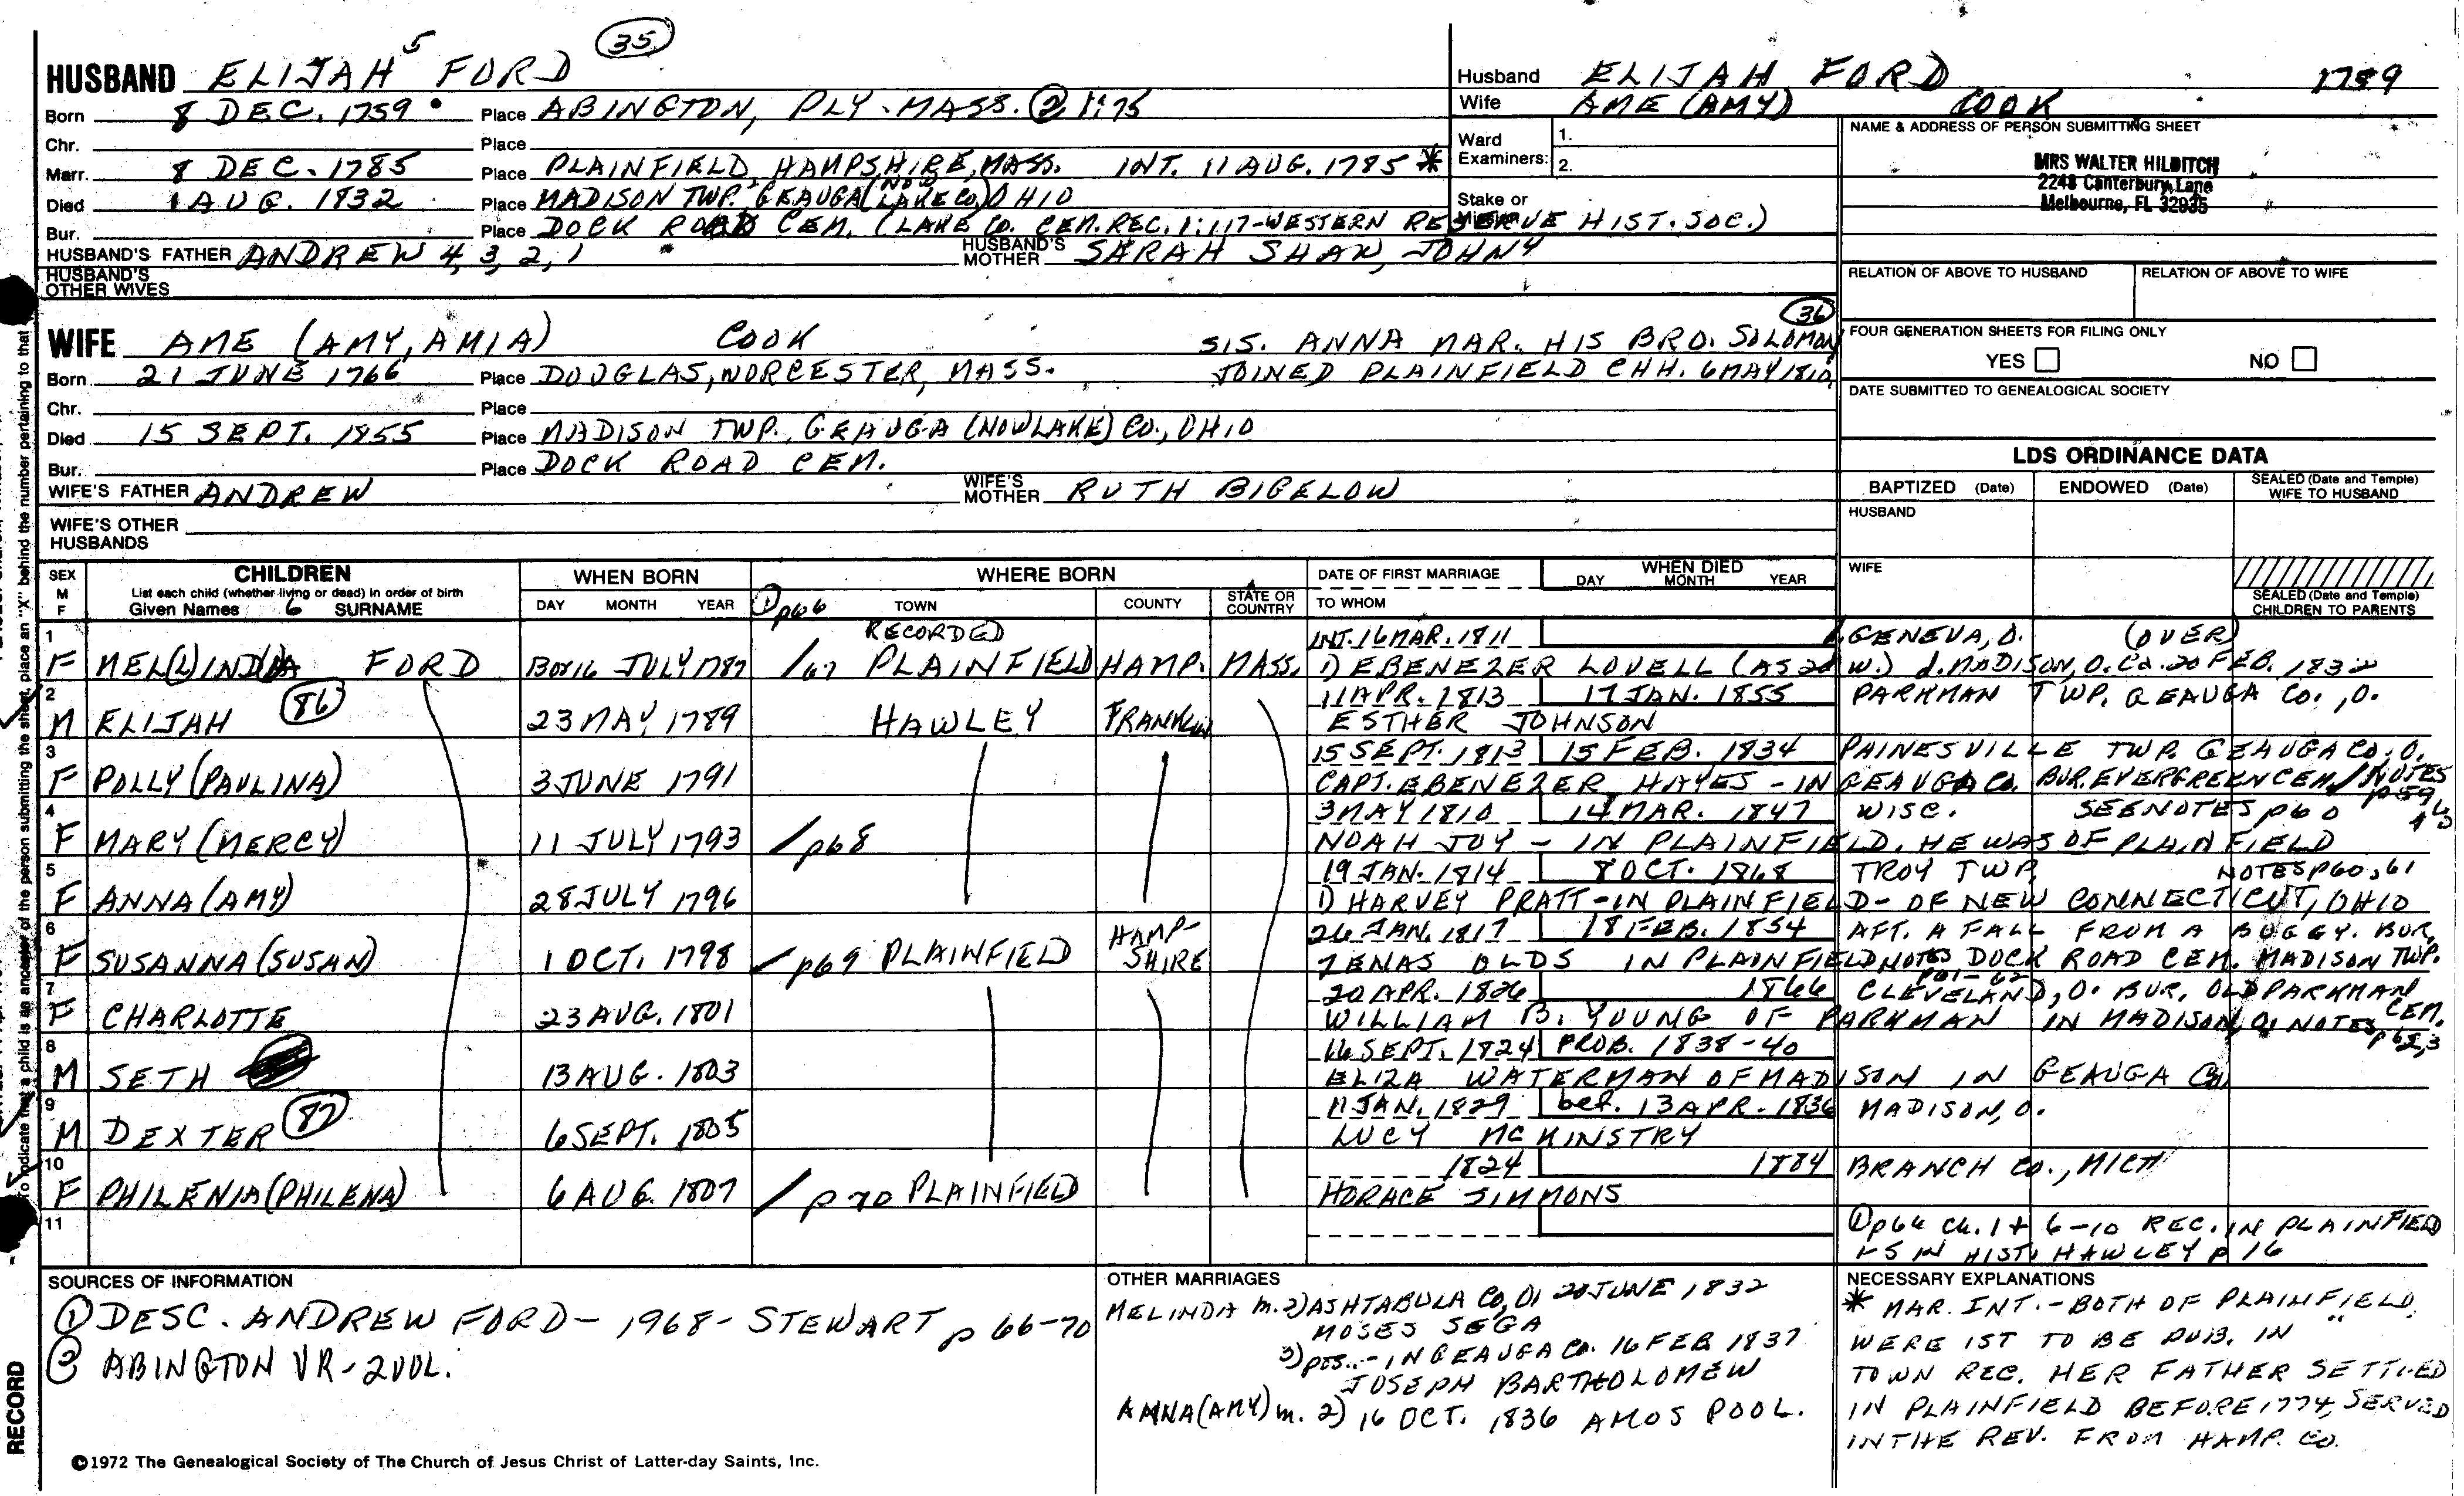 35
5
HUSBAND ELIJAH FORD
Born 8 DEC. 1759 Place ABINGTON, PLY. MASS. ② 1:75
Chr. Place
Marr. 8 DEC. 1785 Place PLAINFIELD, HAMPSHIRE, MASS. INT. 11 AUG. 1785 *
Died 1 AUG. 1832 Place MADISON TWP. GEAUGA (NOW LAKE CO.) OHIO
Bur. Place DOCK ROAD CEM. (LAKE CO. CEM. REC. 1:117-WESTERN RESERVE HIST. SOC.)
HUSBAND'S FATHER ANDREW 4, 3, 2, 1 HUSBAND'S MOTHER SARAH SHAW, JOHN 4
HUSBAND'S OTHER WIVES
Husband ELIJAH FORD 1759
Wife AME (AMY) COOK
Ward Examiners: 1.
2.
Stake or
NAME & ADDRESS OF PERSON SUBMITTING SHEET
MRS WALTER HILDITCH
2248 Canterbury Lane
Melbourne, FL 32935
RELATION OF ABOVE TO HUSBAND RELATION OF ABOVE TO WIFE
36
WIFE AME (AMY, AMIA) COOK SIS. ANNA MAR. HIS BRO. SOLOMON
Born 21 JUNE 1766 Place DOUGLAS, WORCESTER, MASS. JOINED PLAINFIELD CHH. 6 MAY 1810
Chr. Place
Died 15 SEPT. 1855 Place MADISON TWP., GEAUGA (NOW LAKE) CO., OHIO
Bur. Place DOCK ROAD CEM.
WIFE'S FATHER ANDREW WIFE'S MOTHER RUTH BIGELOW
WIFE'S OTHER HUSBANDS
FOUR GENERATION SHEETS FOR FILING ONLY
YES NO
DATE SUBMITTED TO GENEALOGICAL SOCIETY
LDS ORDINANCE DATA
BAPTIZED (Date) ENDOWED (Date) SEALED (Date and Temple) WIFE TO HUSBAND
HUSBAND
WIFE
SEALED (Date and Temple) CHILDREN TO PARENTS
SEX M F
CHILDREN
List each child (whether living or dead) in order of birth
Given Names 6 SURNAME
WHEN BORN
DAY MONTH YEAR
WHERE BORN
① p66 TOWN COUNTY STATE OR COUNTRY
DATE OF FIRST MARRIAGE
TO WHOM
WHEN DIED
DAY MONTH YEAR
1 RECORDED INT. 16 MAR. 1811 GENEVA, O. (OVER)
F MEL(L)INDA FORD 16 JULY 1787 /67 PLAINFIELD HAMP. MASS. 1) EBENEZER LOVELL (AS 2d W.) d. MADISON, O. Co. 20 FEB. 1832
2 11 APR. 1813 17 JAN. 1855 PARKMAN TWP. GEAUGA CO., O.
M ELIJAH 86 23 MAY 1789 HAWLEY FRANKLIN ESTHER JOHNSON
3 15 SEPT. 1813 15 FEB. 1834 PAINESVILLE TWP. GEAUGA CO., O.
F POLLY (PAULINA) 3 JUNE 1791 CAPT. EBENEZER HAYES - IN GEAUGA CO. BUR. EVERGREEN CEM. / NOTES p 59
4 3 MAY 1810 14 MAR. 1847 WISC. SEE NOTES p 60
F MARY (MERCY) 11 JULY 1793 /p68 NOAH JOY - IN PLAINFIELD. HE WAS OF PLAINFIELD
5 19 JAN. 1814 8 OCT. 1868 TROY TWP. NOTES p 60, 61
F ANNA (AMY) 28 JULY 1796 1) HARVEY PRATT - IN PLAINFIELD - OF NEW CONNECTICUT, OHIO
6 26 JAN. 1817 18 FEB. 1854 AFT. A FALL FROM A BUGGY. BUR.
F SUSANNA (SUSAN) 1 OCT. 1798 /p69 PLAINFIELD HAMPSHIRE ZENAS OLDS IN PLAINFIELD NOTES p61-62 DOCK ROAD CEM. MADISON TWP.
7 20 APR. 1826 1866 CLEVELAND, O. BUR. OLD PARKMAN CEM.
F CHARLOTTE 23 AUG. 1801 WILLIAM B. YOUNG OF PARKMAN IN MADISON, O. NOTES p 62,3
8 16 SEPT. 1824 PROB. 1838-40
M SETH 13 AUG. 1803 ELIZA WATERMAN OF MADISON IN GEAUGA CO.
9 11 JAN. 1829 bef. 13 APR. 1836 MADISON, O.
M DEXTER 87 6 SEPT. 1805 LUCY MCKINSTRY
10 1824 1884 BRANCH CO., MICH
F PHILENIA (PHILENA) 6 AUG. 1807 / p 70 PLAINFIELD HORACE SIMMONS
11 ① p66 Ch. 1 + 6-10 REC. IN PLAINFIELD
1-5 IN HIST. HAWLEY p 16
SOURCES OF INFORMATION
① DESC. ANDREW FORD - 1968 - STEWART p 66-70
② ABINGTON VR - 2 VOL.
OTHER MARRIAGES
MELINDA m. 2) ASHTABULA CO, O. 20 JUNE 1832
MOSES SEGA
3) pos. - IN GEAUGA CO. 16 FEB 1837
JOSEPH BARTHOLOMEW
ANNA (AMY) m. 2) 16 OCT. 1836 AMOS POOL.
NECESSARY EXPLANATIONS
* MAR. INT. - BOTH OF PLAINFIELD.
WERE 1ST TO BE PUB. IN "
TOWN REC. HER FATHER SETTLED
IN PLAINFIELD BEFORE 1774, SERVED
IN THE REV. FROM HAMP. CO.
©1972 The Genealogical Society of The Church of Jesus Christ of Latter-day Saints, Inc.
To indicate that a child is an ancestor of the person submitting the sheet, place an "X" behind the number pertaining to that
RECORD